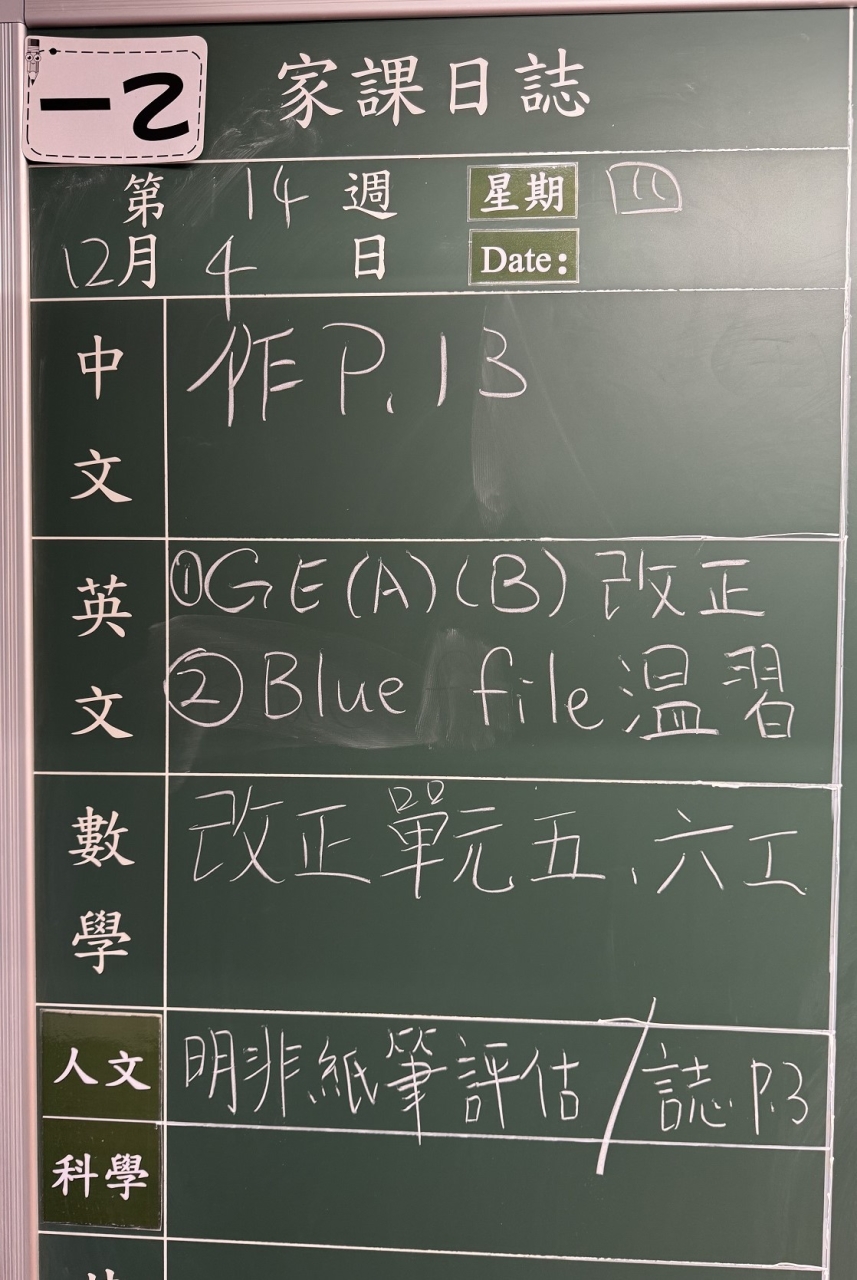 一乙
家課日誌
第14週 星期 四
12月4日 Date:
中文 作P.13
英文 ①GE(A)(B)改正
②Blue file溫習
數學 改正單元五、六工
人文 明非紙筆評估/誌P.3
科學